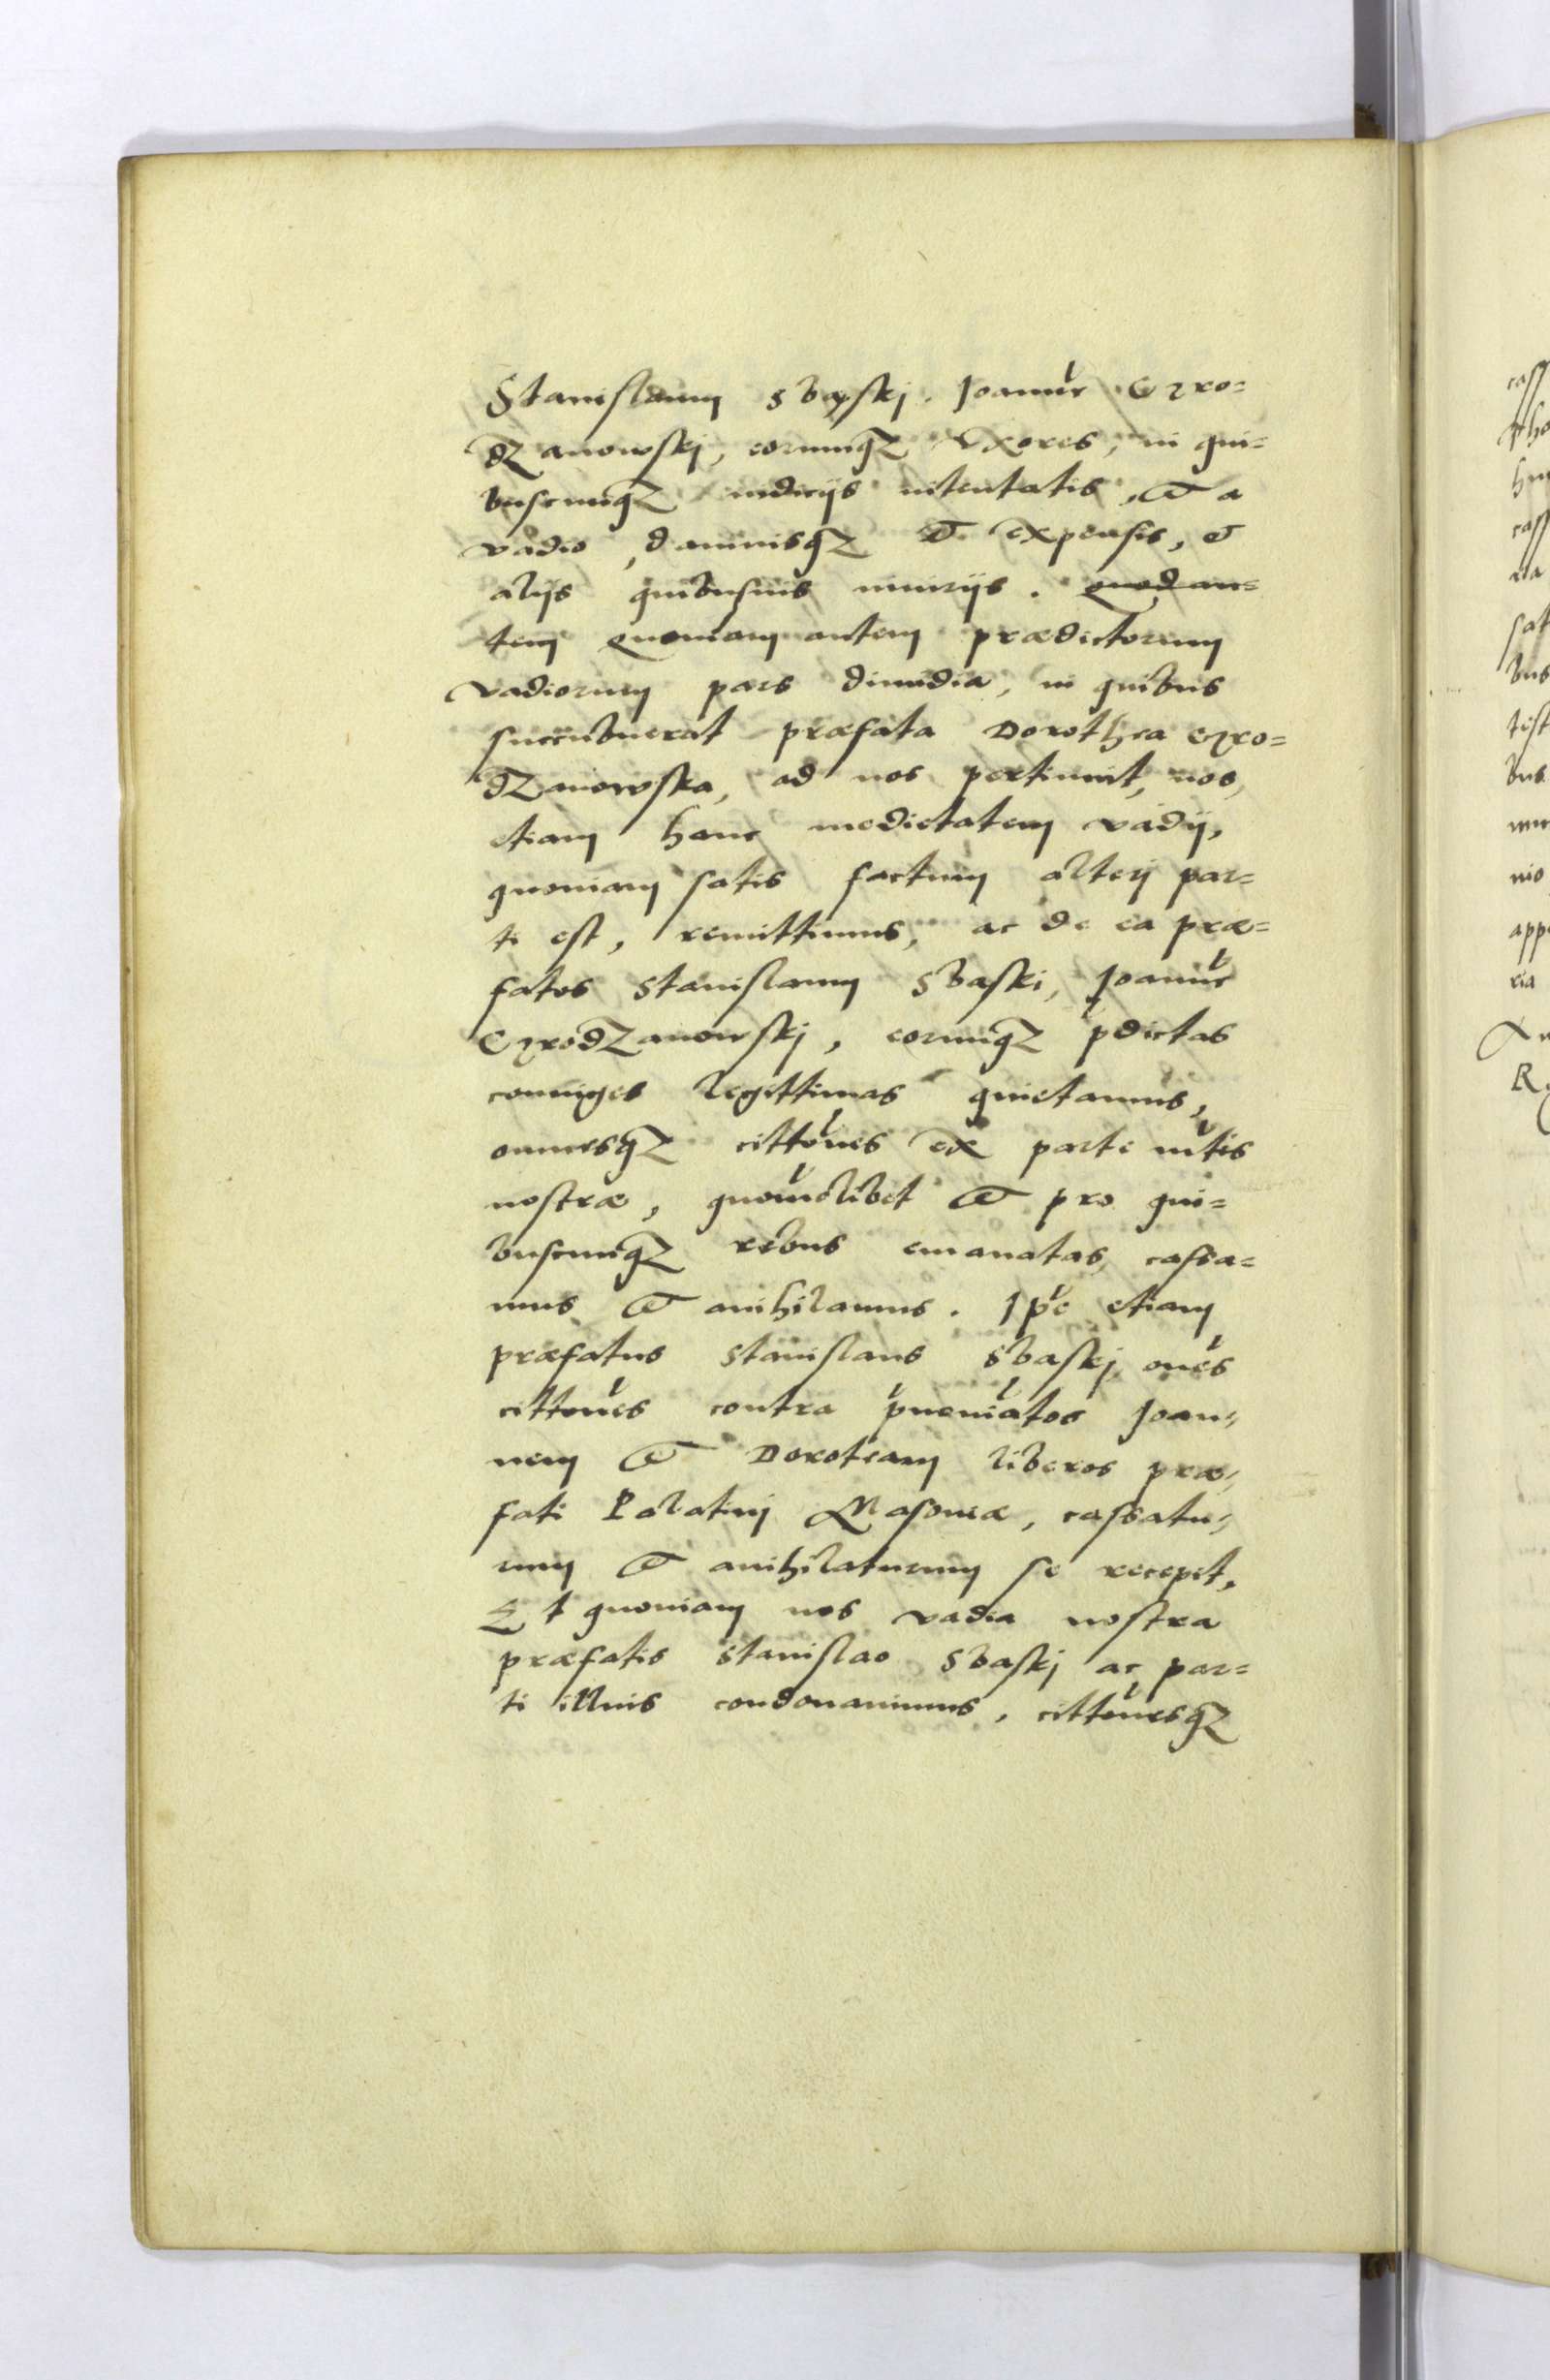 Stanislaum Sbąski. Joannē Gro=
dzanowskj, eorumq₃ Uxores, in qui=
buscunq₃ iudicijs intentatis, et a
vadio, damnisq₃ et expensis, et
alijs quibusuis iniurijs. quod au=
tem quoniam autem prædictorum
vadiorum pars dimidia, in quibus
succubuerat præfata Dorothea Gro=
dzanowska, ad nos pertinuit, nos
etiam hanc medietatem vadij,
quoniam satis factum alterj par=
ti est, remittimus, ac de ea præ=
fatos Stanislaum Sbaski, Joannē
Grodzanowskj, eorumq₃ pdictas
coniuges legittimas quietamus,
omnesq₃ cittōnes ex parte mtis
nostræ, quomōlibet et pro qui=
buscunq₃ rebus emanatas, cassa=
mus et anihilamus. Ipē etiam
præfatus Stanislaus Sbaskj onēs
cittōnes contra pnomīatos Joan=
nem et Doroteam liberos præ=
fati Palatinj Masouiæ, cassatu=
rum et anihilaturum se recepit,
Et quoniam nos vadia nostra
præfatis Stanislao Sbaskj ac par=
ti illius condonauimus, cittōnesq₃